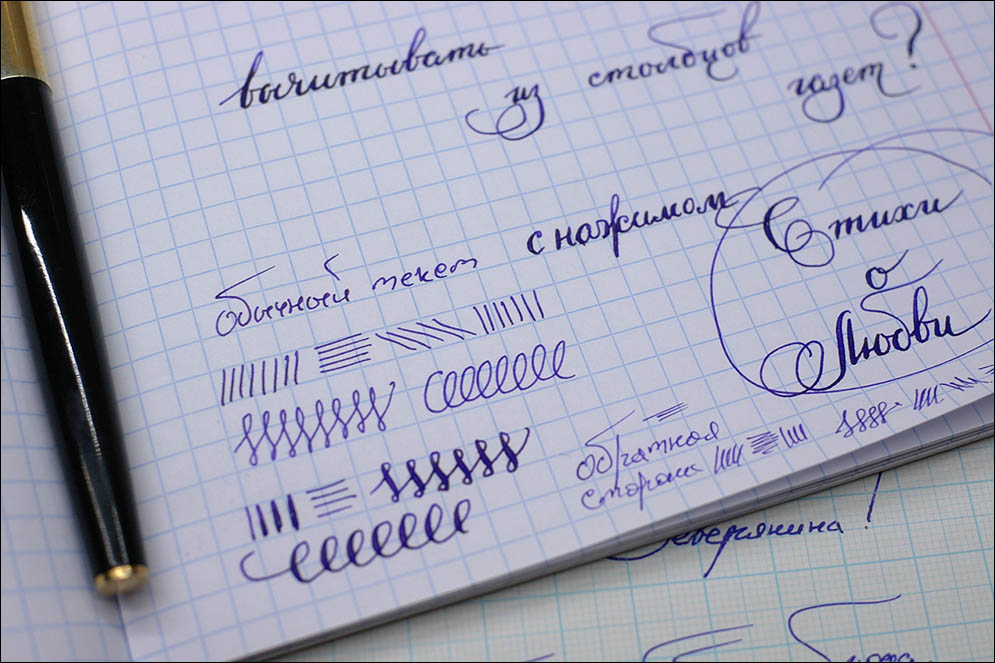 вычитывать из столбцов газет?
с нажимом
обычный текст
Стихи
о
Любви
обратная
сторона
Северянина!